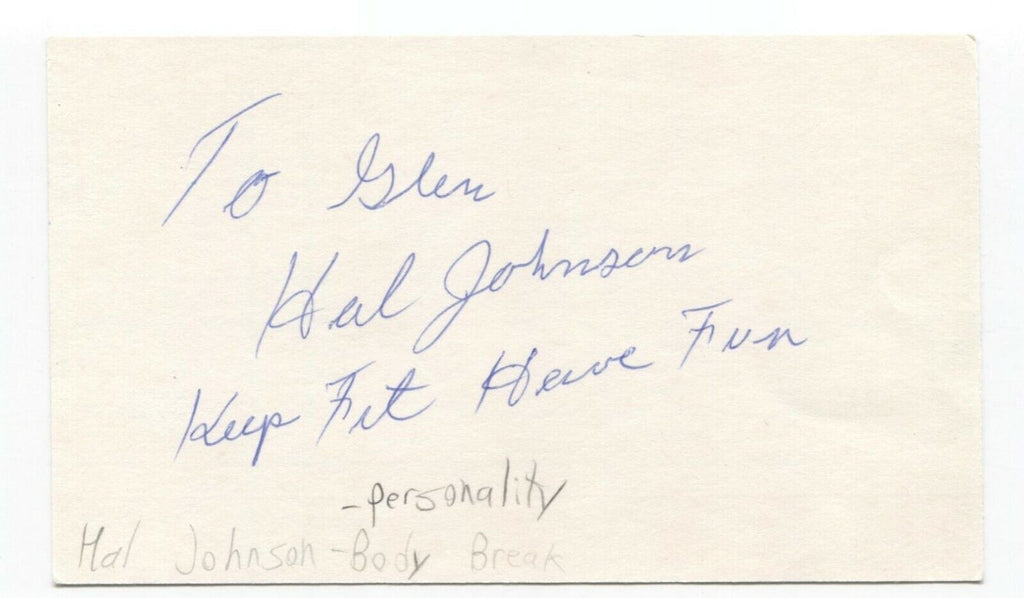 To Glen
Hal Johnson
Keep Fit Have Fun
-personality
Hal Johnson-Body Break